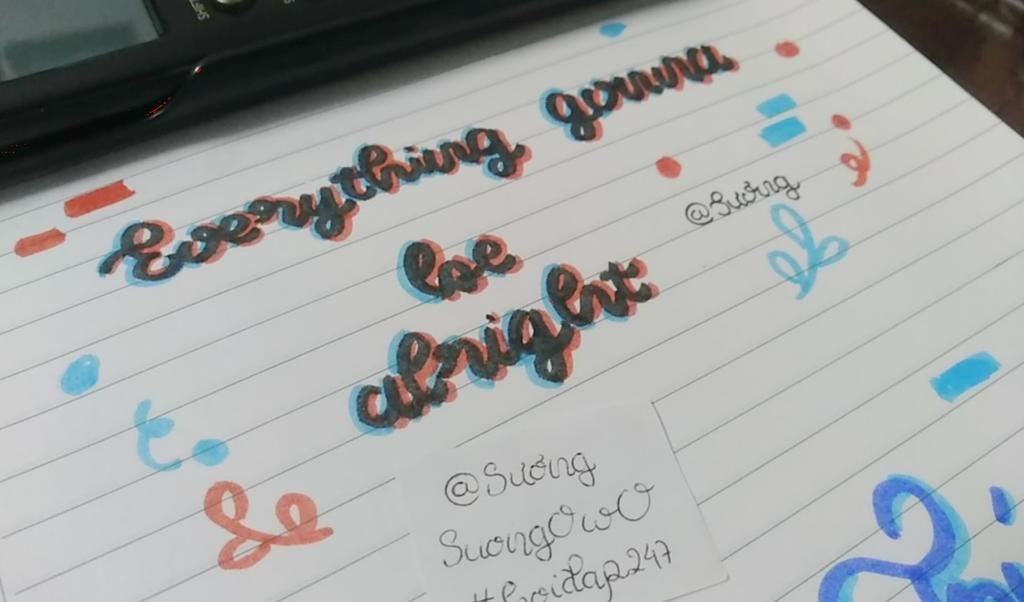 Everything gonna
be
alright
@Sương
@Sương
SuongOwO
#hoidap247